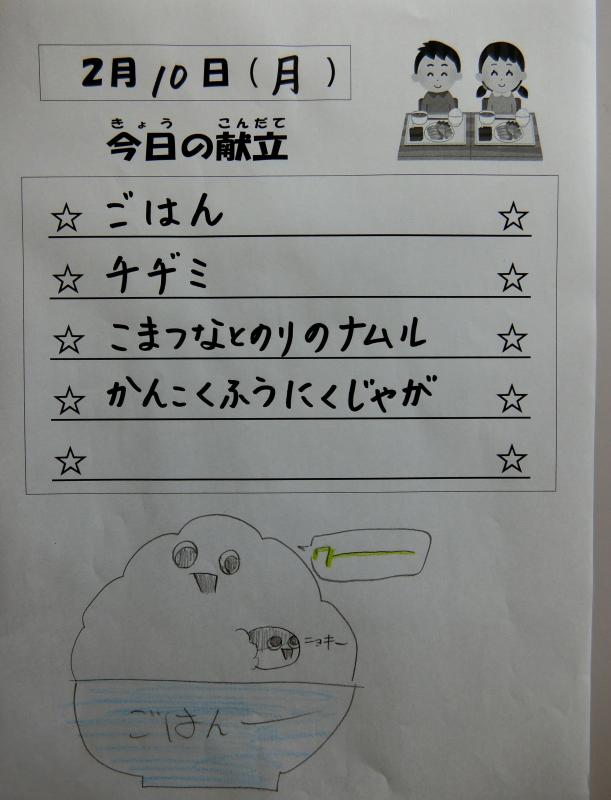 2月10日(月)
きょう こんだて
今日の献立
☆ ごはん ☆
☆ チヂミ ☆
☆ こまつなとのりのナムル ☆
☆ かんこくふうにくじゃが ☆
☆ ☆
ワー
ニョキー
ごはんー